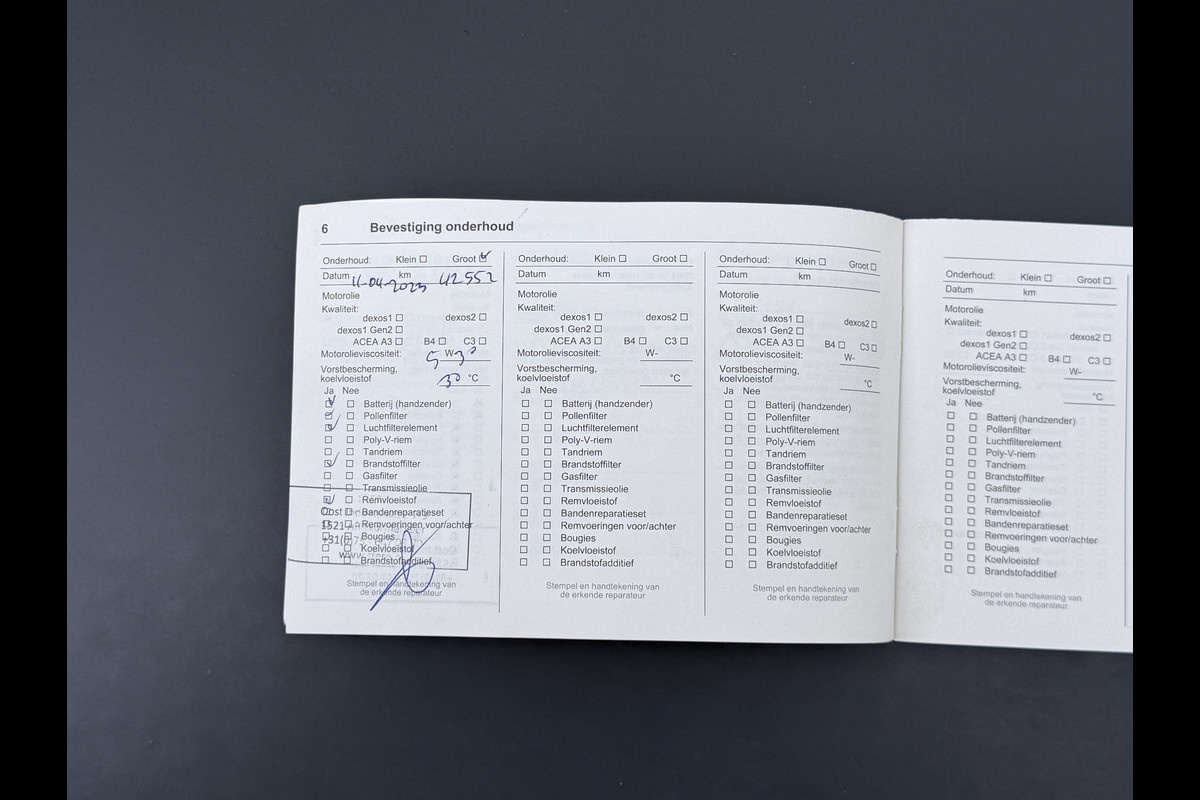 6 Bevestiging onderhoud
Onderhoud: Klein Groot
Datum 11-04-2023 km 42552
Motorolie
Kwaliteit:
dexos1 dexos2
dexos1 Gen2
ACEA A3 B4 C3
Motorolieviscositeit: 5 W- 30
Vorstbescherming,
koelvloeistof 30 °C
Ja Nee
Batterij (handzender)
Pollenfilter
Luchtfilterelement
Poly-V-riem
Tandriem
Brandstoffilter
Gasfilter
Transmissieolie
Remvloeistof
Bandenreparatieset
Remvoeringen voor/achter
Bougies
Koelvloeistof
Brandstofadditief
Stempel en handtekening van
de erkende reparateur
Onderhoud: Klein Groot
Datum km
Motorolie
Kwaliteit:
dexos1 dexos2
dexos1 Gen2
ACEA A3 B4 C3
Motorolieviscositeit: W-
Vorstbescherming,
koelvloeistof °C
Ja Nee
Batterij (handzender)
Pollenfilter
Luchtfilterelement
Poly-V-riem
Tandriem
Brandstoffilter
Gasfilter
Transmissieolie
Remvloeistof
Bandenreparatieset
Remvoeringen voor/achter
Bougies
Koelvloeistof
Brandstofadditief
Stempel en handtekening van
de erkende reparateur
Onderhoud: Klein Groot
Datum km
Motorolie
Kwaliteit:
dexos1 dexos2
dexos1 Gen2
ACEA A3 B4 C3
Motorolieviscositeit: W-
Vorstbescherming,
koelvloeistof °C
Ja Nee
Batterij (handzender)
Pollenfilter
Luchtfilterelement
Poly-V-riem
Tandriem
Brandstoffilter
Gasfilter
Transmissieolie
Remvloeistof
Bandenreparatieset
Remvoeringen voor/achter
Bougies
Koelvloeistof
Brandstofadditief
Stempel en handtekening van
de erkende reparateur
Onderhoud: Klein Groot
Datum km
Motorolie
Kwaliteit:
dexos1 dexos2
dexos1 Gen2
ACEA A3 B4 C3
Motorolieviscositeit: W-
Vorstbescherming,
koelvloeistof °C
Ja Nee
Batterij (handzender)
Pollenfilter
Luchtfilterelement
Poly-V-riem
Tandriem
Brandstoffilter
Gasfilter
Transmissieolie
Remvloeistof
Bandenreparatieset
Remvoeringen voor/achter
Bougies
Koelvloeistof
Brandstofadditief
Stempel en handtekening van
de erkende reparateur